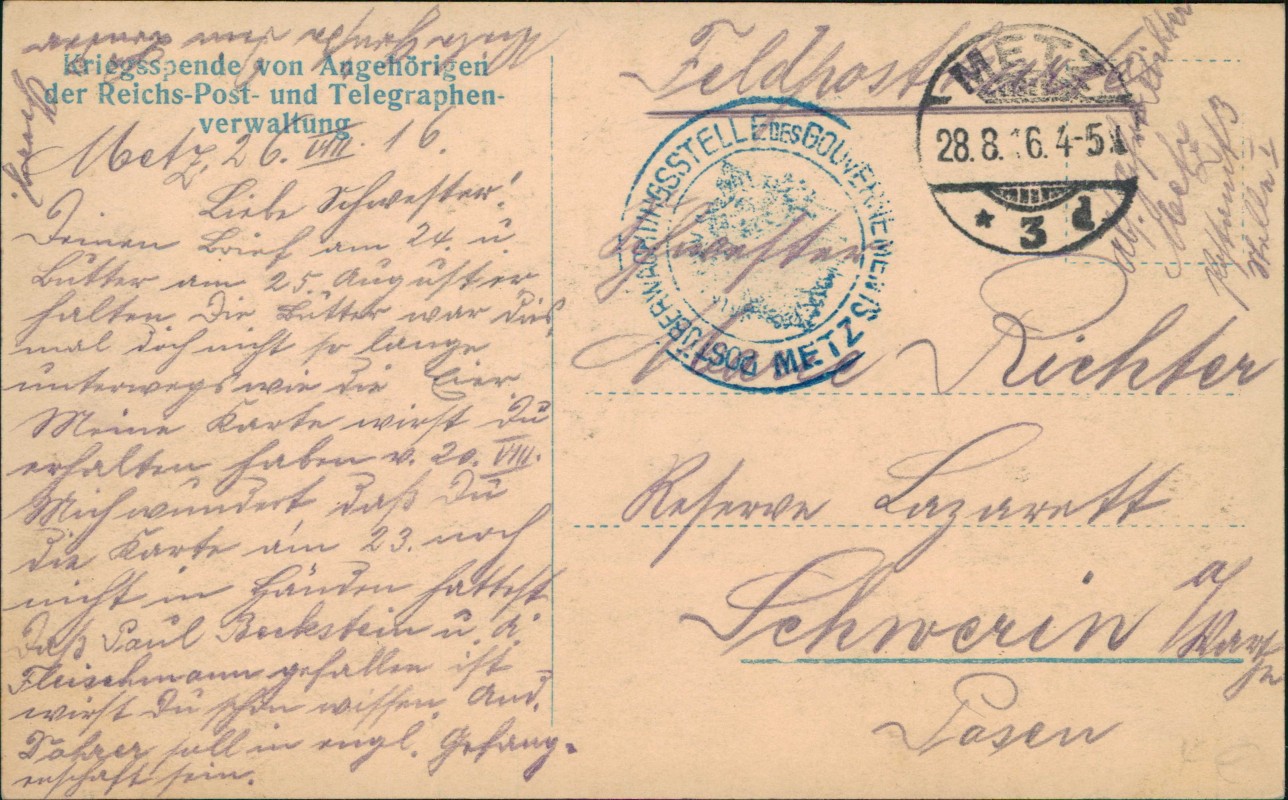 Kriegsspende von Angehörigen
der Reichs-Post- und Telegraphen-
verwaltung
Metz, 26. VIII. 16.
Liebe Schwester!
Deinen Brief am 24. u.
Butter am 25. August er
halten Die Butter war dies
mal doch nicht so lange
unterwegs wie die Eier.
Meine Karte wirst Du
erhalten haben v. 20. VIII.
Mich wundert daß Du
die Karte am 23. noch
nicht in Händen hattest
Daß Paul Beckstein u. A.
Fleischmann gefallen ist
wirst Du schon wissen And.
soll in engl. Gefang-
enschaft sein.
Feldpostkarte
METZ
28.8.16.4-5N
* 3 d.
POSTÜBERWACHUNGSSTELLE DES GOUVERNEMENTS METZ
Schwester
Richter
Reserve Lazarett
Schwerin a/
Warthe
Posen
Abs.
Metz